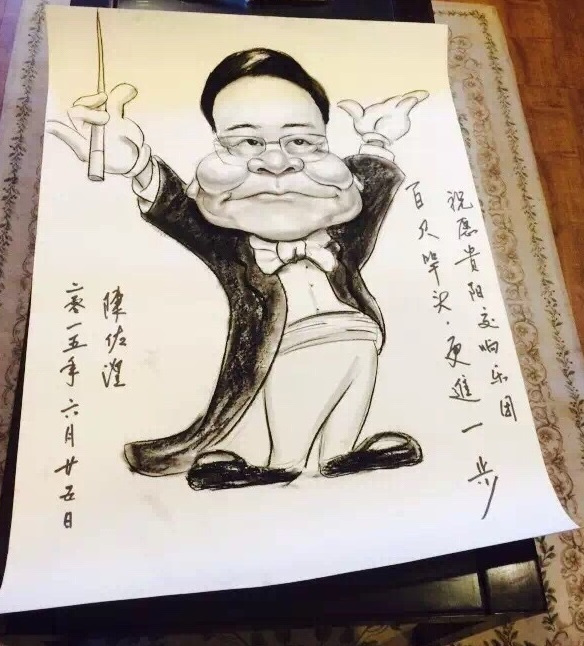 祝愿贵阳交响乐团
百尺竿头·更進一步
陳佐湟
二零一五年六月廿五日